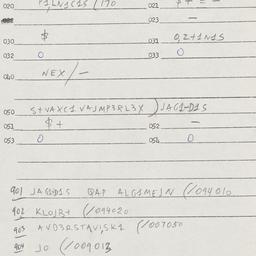 020 P1LN1C1S (/170 021
023 —
030 $ 031 0,2+1N1S
032 0 033 0
040 NEX/—
050 S+VAXC1VAJMP3RL3X) JAG1-D1S
051 $+ 052 —
053 0 054 0
901 JAGD1S QAP ALG1MEJN (/094010
902 KLOJR+ (/094020
903 AVD3RSTAVJSK1 (/007050
904 JO (/009013